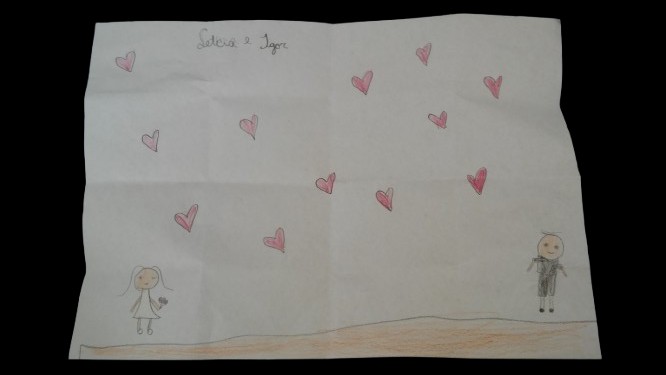 Letcia e Igor